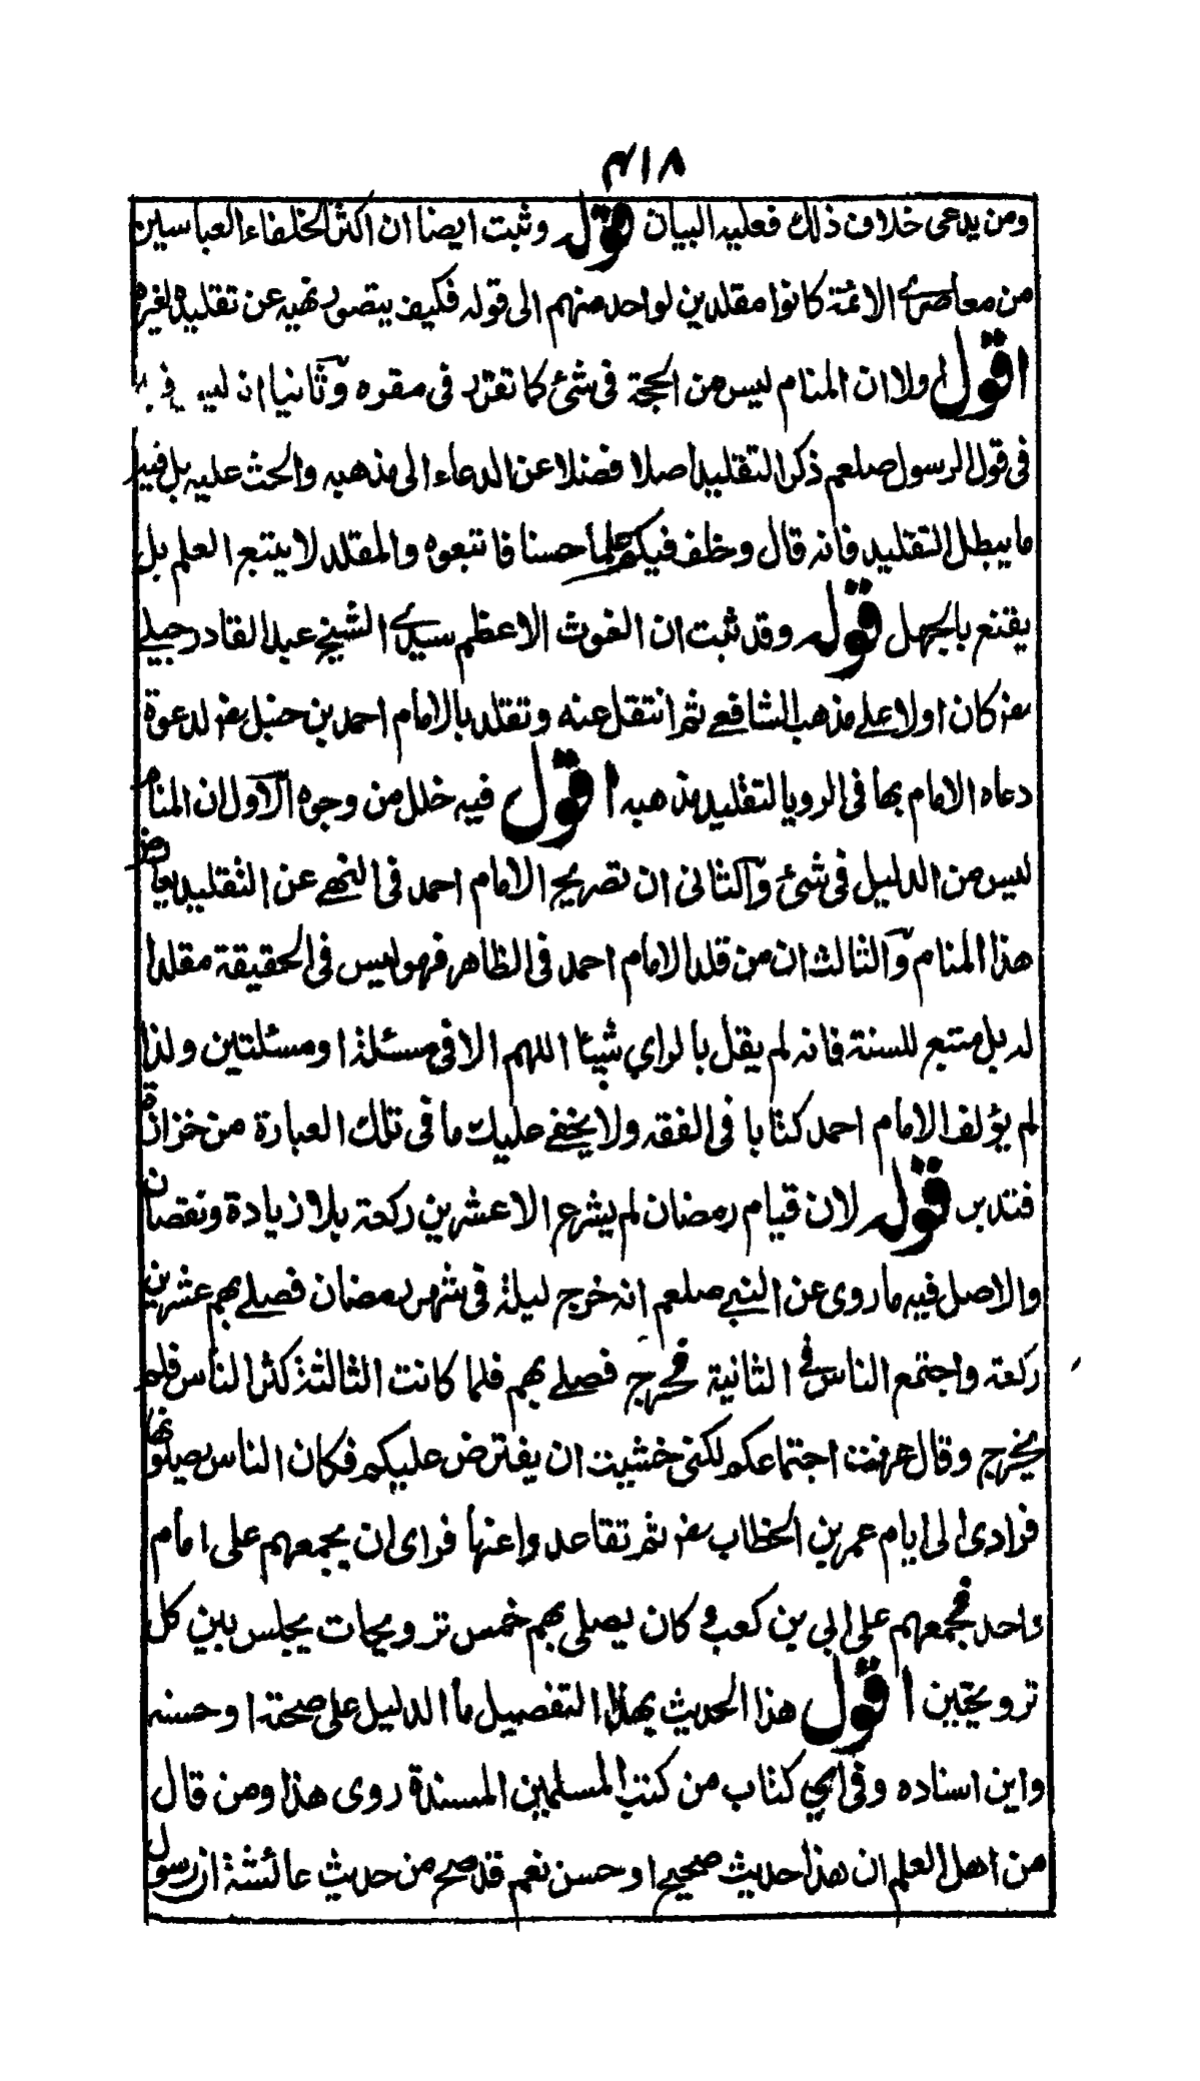 ۴۱۸
ومن يدعى خلاف ذلك فعليه البيان قوله وثبت ايضا ان اكثر الخلفاء العباسين
من معاصرے الائمة كانوا مقلدين لواحد منهم الى قوله فكيف يتصور نهيه عن تقليده لغيره
اقول اولا ان المنام ليس من الحجة فى شئ كما تقرر فى مقره وثانيا انه ليس
فى قول الرسول صلعم ذكر التقليد اصلا فضلا عن الدعاء الى مذهبه والحث عليه بل فيه
ما يبطل التقليد فانه قال وخلف فيكم علما حسنا فاتبعوه والمقلد لا يتبع العلم بل
يقنع بالجهل قوله وقد ثبت ان الغوث الاعظم سيدے الشيخ عبد القادر جيلے
رضہ كان اولا علے مذهب الشافعے ثم انتقل عنه وتقلد بالامام احمد بن حنبل رضہ لدعوة
دعاه الامام بها فى الرويا لتقليد مذهبه اقول فيه خلل من وجوه الاول ان المنام
ليس من الدليل فى شئ والثانى ان تصريح الامام احمد فى النهے عن التقليد يعارض
هذا المنام والثالث ان من قلد الامام احمد فى الظاهر فهو ليس فى الحقيقة مقلدا
له بل متبع للسنة فانه لم يقل بالراي شيئا اللهم الا فى مسئلة او مسئلتين ولذا
لم يؤلف الامام احمد كتابا فى الفقه ولا يخفے عليك ما فى تلك العبارة من خزازة
فتدبر قوله لان قيام رمضان لم يشرع الا عشرين ركعة بلا زيادة ونقصان
والاصل فيه ما روى عن النبے صلعم انه خرج ليلة فى شهر رمضان فصلے بهم عشرين
ركعة واجتمع الناس فى الثانية فخرج فصلے بهم فلما كانت الثالثة كثر الناس فلم
يخرج وقال عرفت اجتماعكم لكنى خشيت ان يفترض عليكم فكان الناس يصلونها
فرادى الى ايام عمر بن الخطاب رضہ ثم تقاعدوا عنها فراى ان يجمعهم على امام
واحد فجمعهم على ابي بن كعب وكان يصلى بهم خمس ترويحات يجلس بين كل
ترويحتين اقول هذا الحديث بهذا التفصيل ما الدليل على صحته او حسنه
واين اسناده وفى اي كتاب من كتب المسلمين المسندة روى هذا ومن قال
من اهل العلم ان هذا حديث صحيح او حسن نعم قد صح من حديث عائشة ان رسول